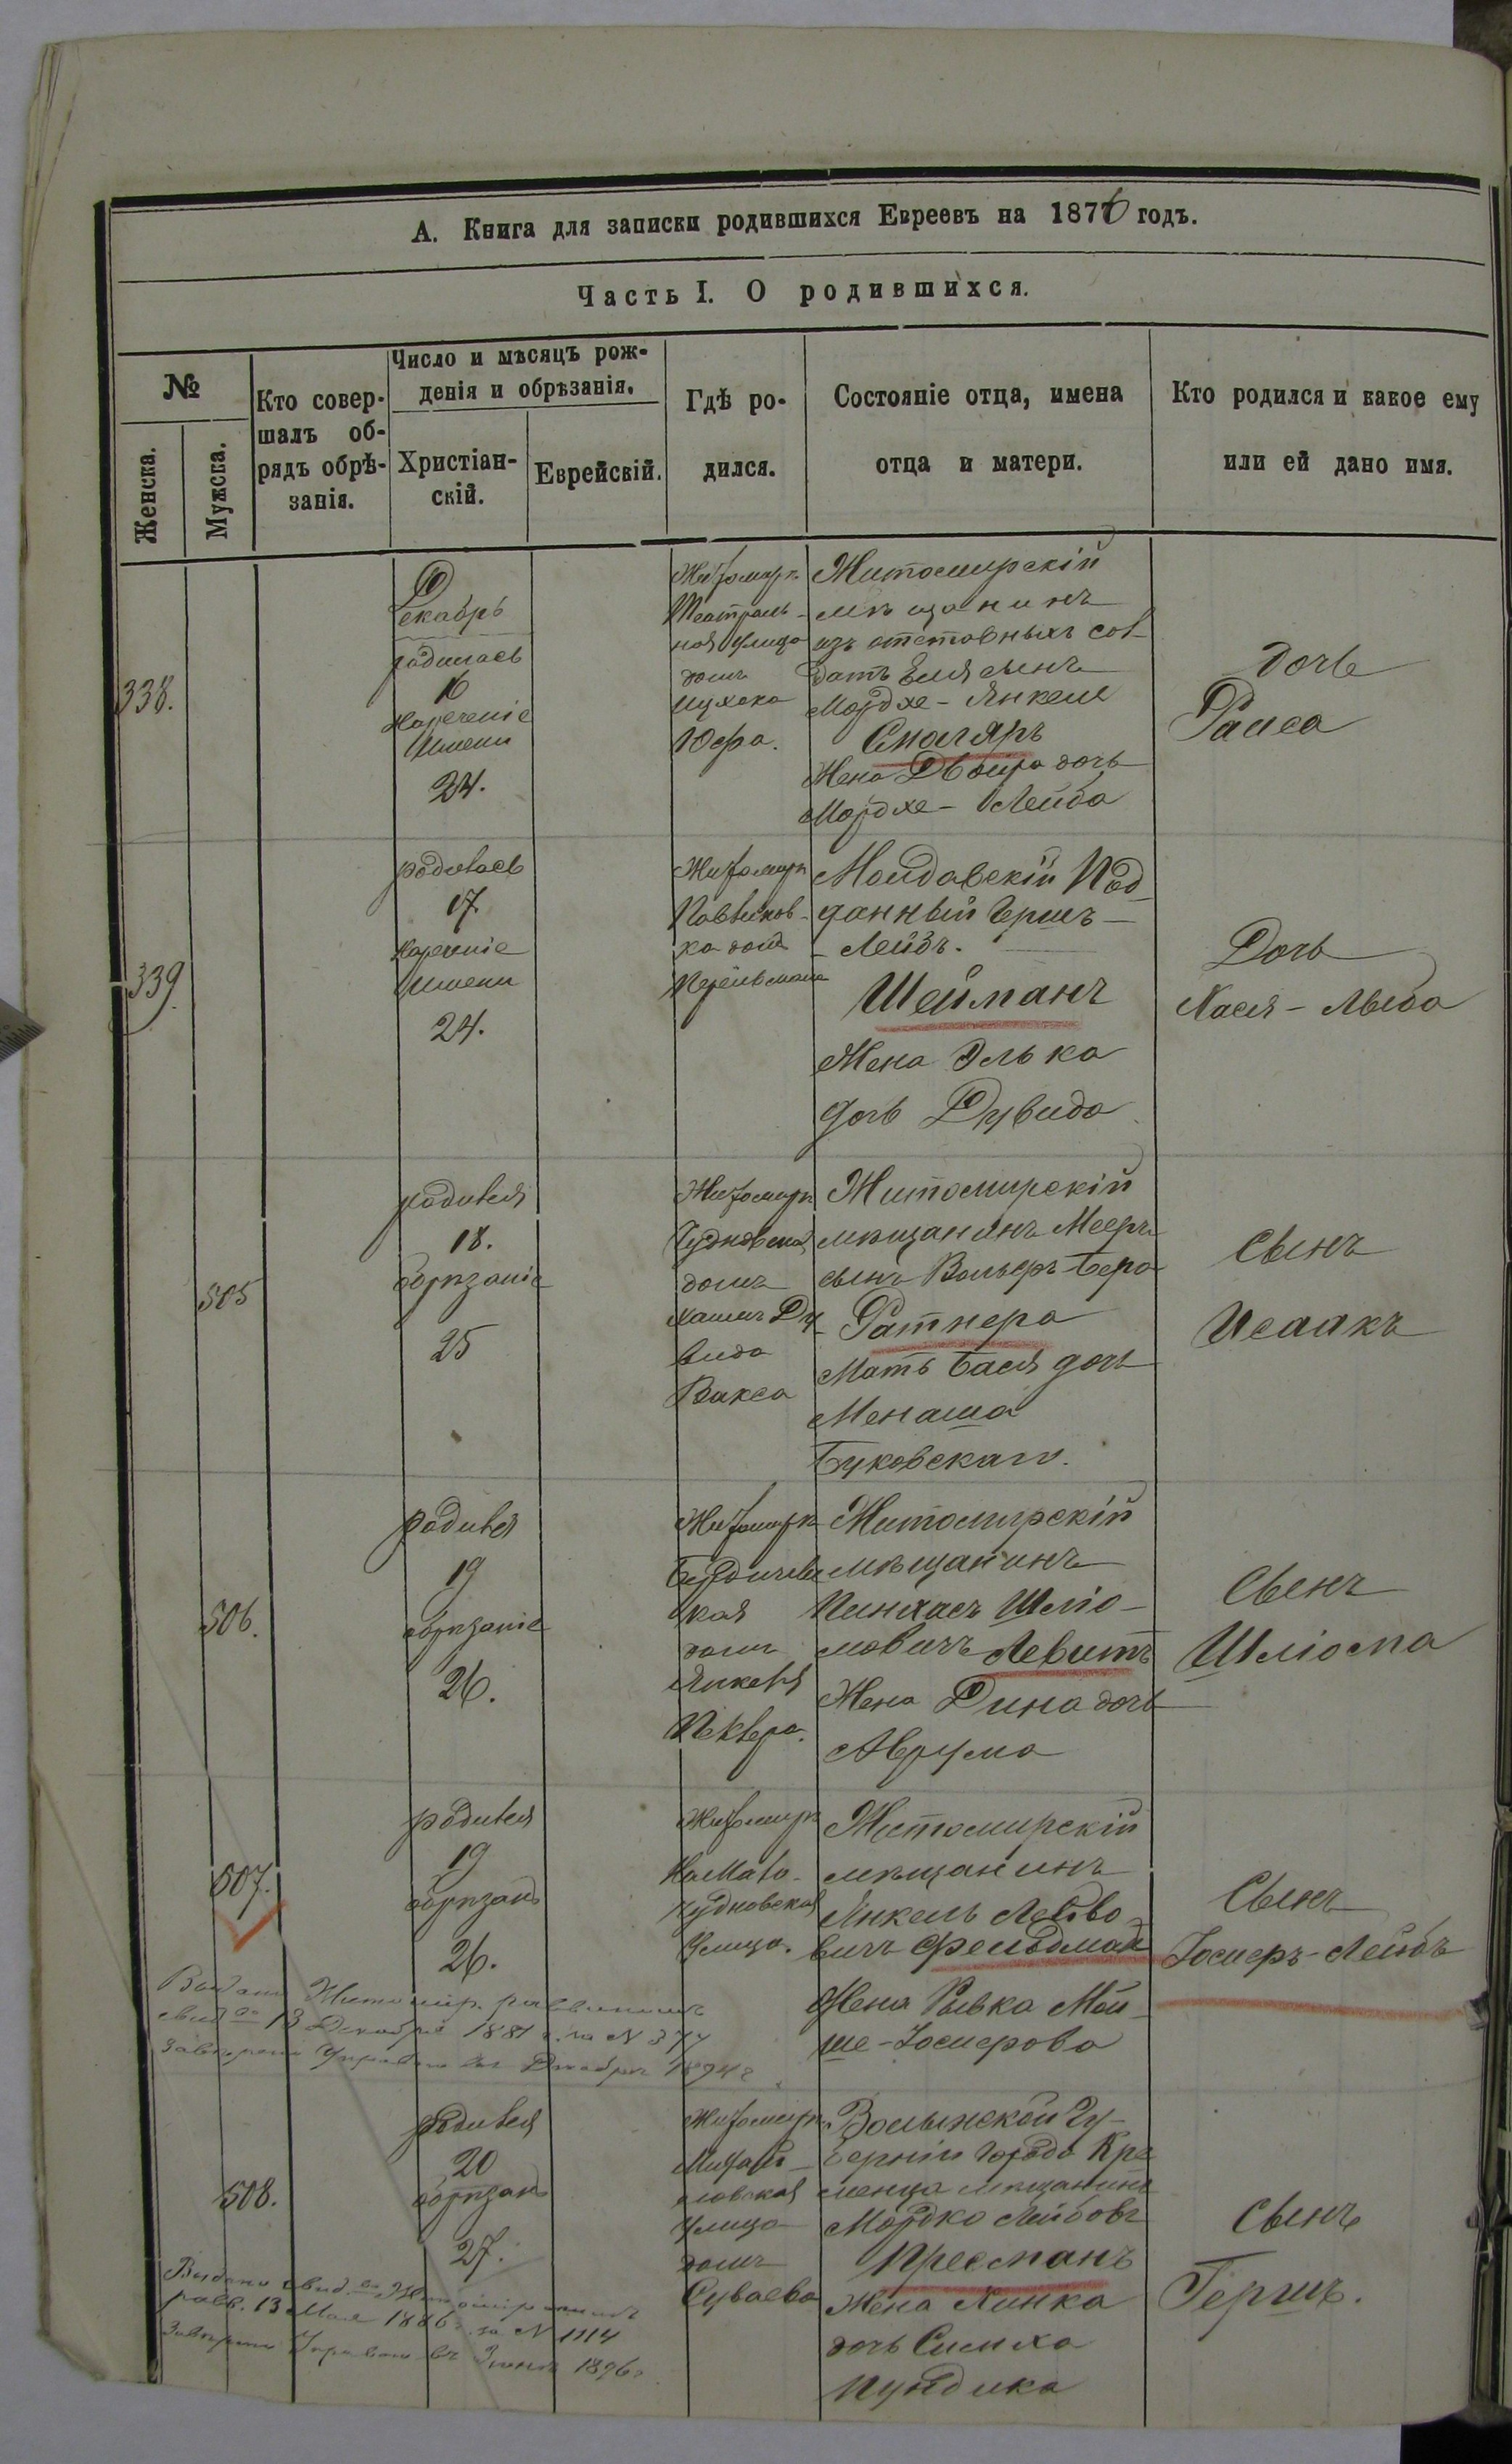 А. Книга для записки родившихся Евреевъ на 1876 годъ.
Часть I. О родившихся.
№
Женска.
Мужска.
Кто совер-
шалъ об-
рядъ обрѣ-
занія.
Число и мѣсяцъ рож-
денія и обрѣзанія.
Христіан-
скій.
Еврейскій.
Гдѣ ро-
дился.
Состояніе отца, имена
отца и матери.
Кто родился и какое ему
или ей дано имя.
338.
Декабрь
родилась
16
Нареченіе
Имени
24.
Житомиръ
Театраль-
ная улица
домъ
Ицхока
Юфа.
Житомирскій
мѣщанинъ
изъ отставныхъ сол-
датъ Еля сынъ
Мордхе-Янкеля
Смоляръ
Жена Двойра дочь
Мордхе-Лейба
дочь
Раиса
339.
родилась
17
Нареченіе
Имени
24.
Житомиръ
Павликов-
ка домъ
Перельмана
Молдавскій Под-
данный Гершъ-
Лейбъ.
Шейманъ
Жена Элька
дочь Дувида
Дочь
Хася-Лыба
505
родился
18.
обрѣзаніе
25
Житомиръ
Чудновская
домъ
Хаимъ Ду-
вида
Вакса
Житомирскій
мѣщанинъ Мееръ
сынъ Вольфъ-Бера
Ратнера
Мать Бася дочь
Менаша
Буковскаго.
Сынъ
Исаакъ
506.
родился
19
обрѣзаніе
26.
Житомиръ
Бердичевс
кая
домъ
Янкеля
Житомирскій
мѣщанинъ
Пинхасъ Шліо-
мовичъ Левитъ
Жена Дина дочь
Аврума
Сынъ
Шліома
507.
родился
19
обрѣзанъ
26.
Житомиръ
На Мало-
чудновской
Улица.
Житомирскій
мѣщанинъ
Янкель Лейбо-
вичъ Фельдман
Жена Рывка Мой-
ше-Іосифова
Сынъ
Іосифъ-Лейбъ
Выдано Житомир. раввиномъ
свид.во 13 Декабря 1881 г. за N 374
Завѣрено Управою въ Декабрѣ 1894 г
508.
родился
20
обрѣзанъ
27.
Житомиръ
Михай-
ловская
Улица
домъ
Суваева
Волынской Гу-
берніи города Кре
менца мѣщанинъ
Мордко Лейбовъ
Пресманъ
Жена Хинка
дочь Симха
Пундика
Сынъ
Гершъ.
Выдано свид.во Житомірскимъ
равв. 13 Мая 1886 г. за N 1114
Завѣрено Управою въ Іюнѣ 1896 г